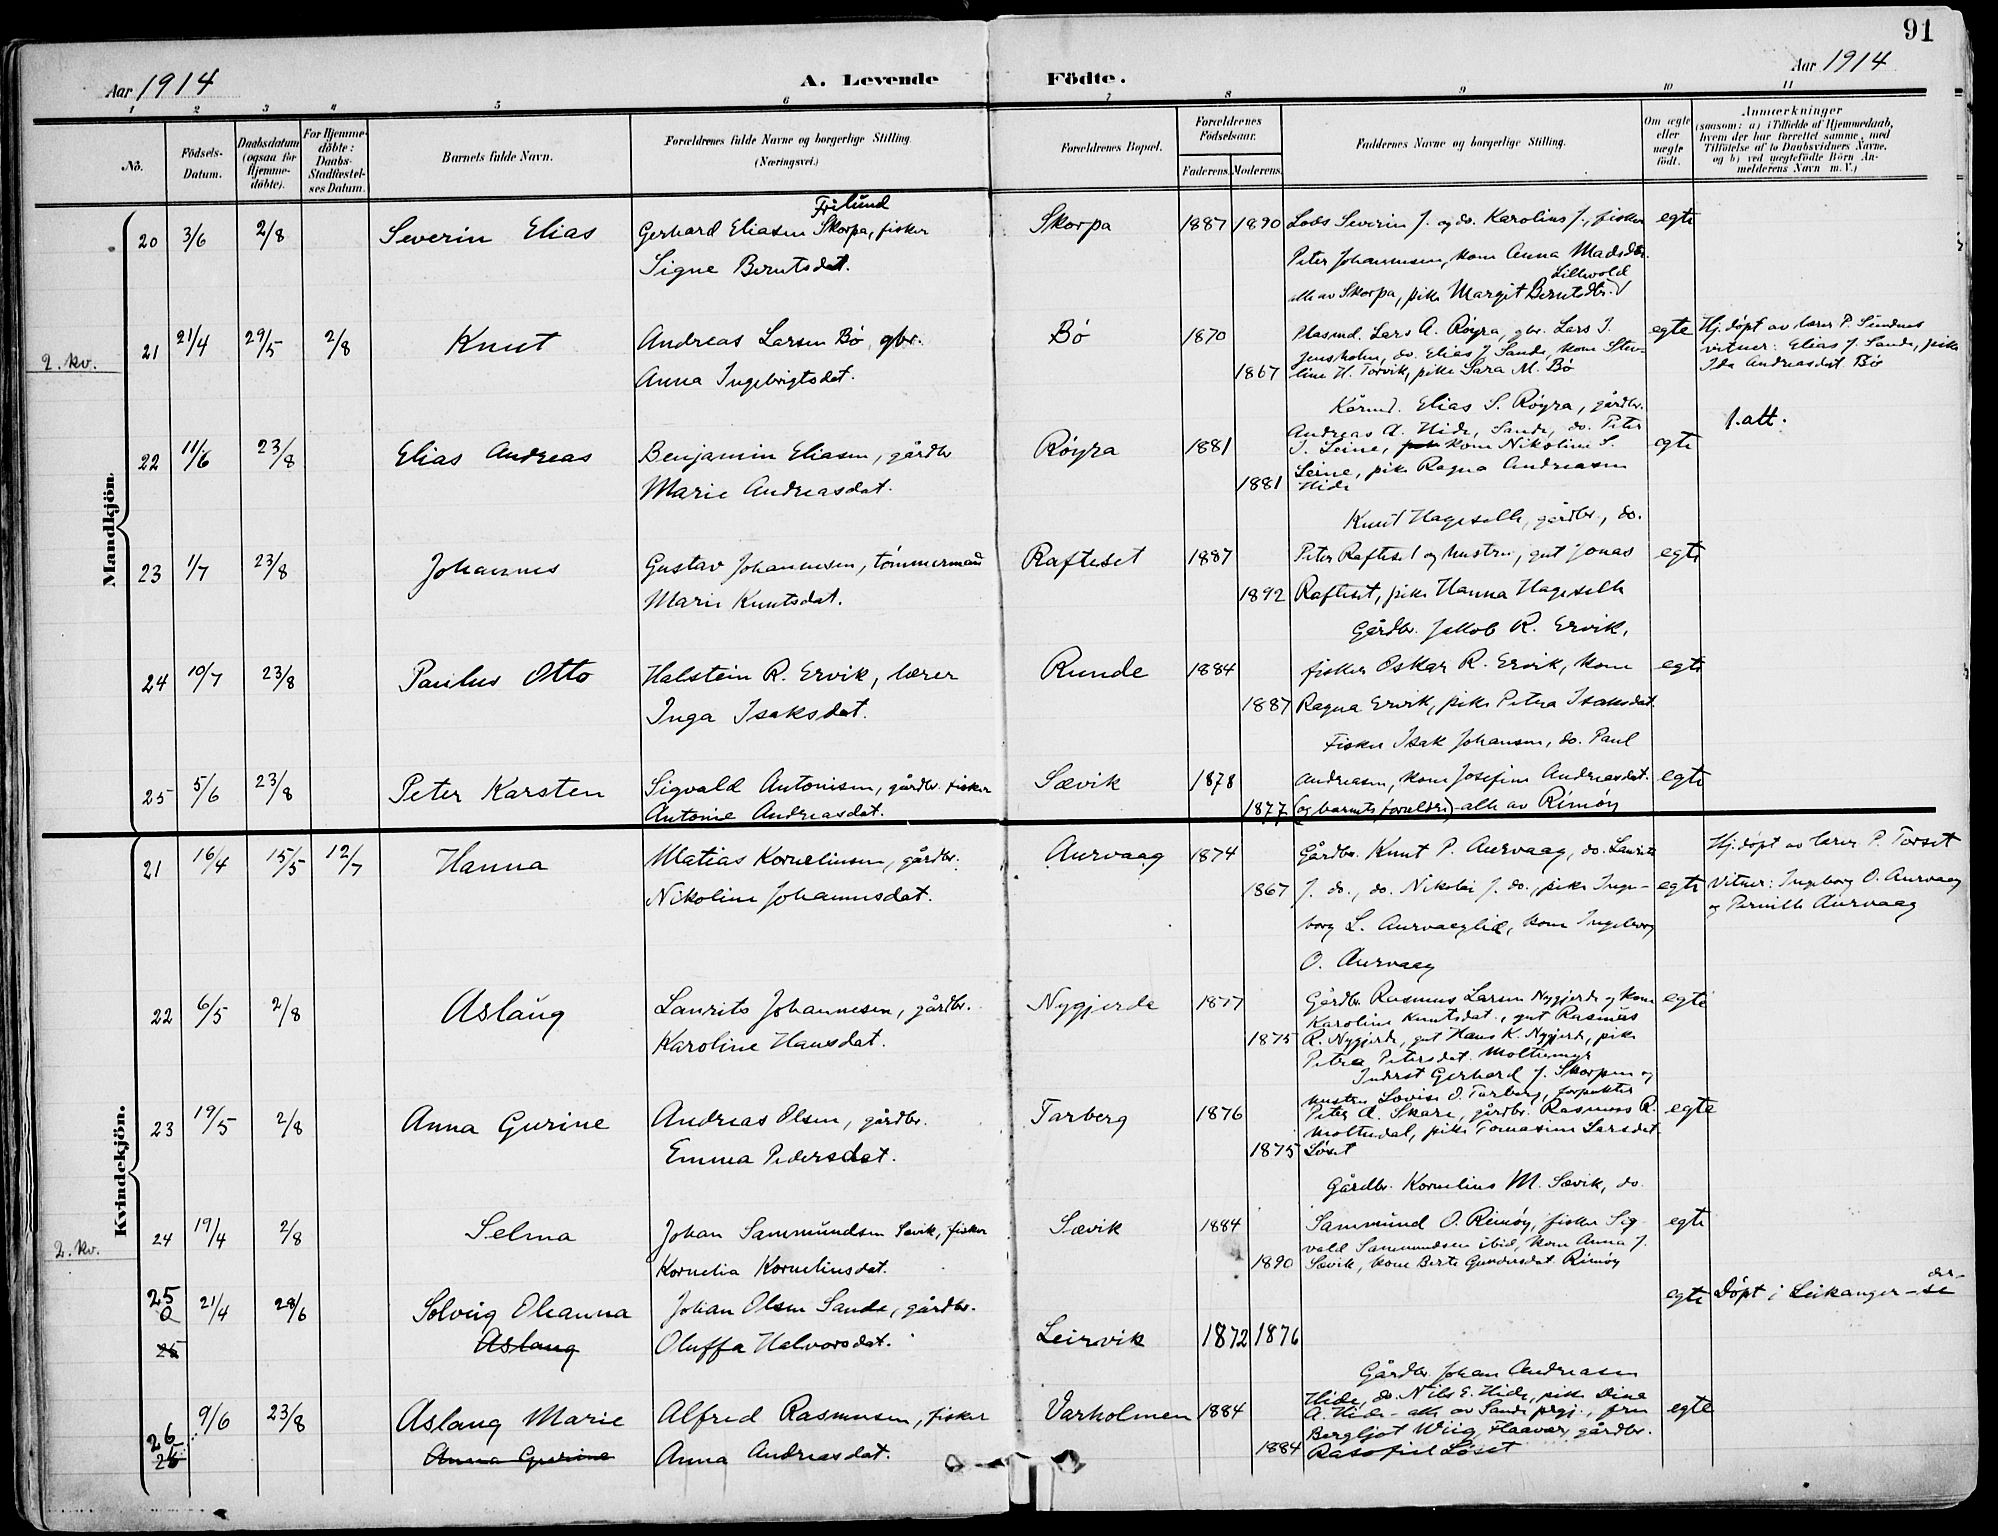 91
Aar 1914
A. Levende Födte.
Aar 1914
1 2 3 4 5 6 7 8 9 10 11
No.
Födsels-Datum.
Daabsdatum (ogsaa for Hjemme-döbte).
For Hjemme-döbte: Daabs-Stadfæstel-ses Datum.
Barnets fulde Navn.
Forældrenes fulde Navne og borgerlige Stilling.
(Næringsvei.)
Forældrenes Bopæl.
Forældrenes Födselsaar.
Faderens. Moderens.
Faddernes Navne og borgerlige Stilling.
Om ægte eller uægte födt.
Anmærkninger
(saasom: a) i Tilfælde af Hjemmedaab,
hvem der har forrettet samme, med
Tilföielse af to Daabsvidners Navne,
og b) ved uegtefödte Börn An-
melderens Navn m. V.)
Mandkjön.
Frilund
20 3/6 2/8 Severin Elias Gerhard Eliasen Skorpa, fisker Skorpa 1887 1890 Lods Severin J. og do. Karolius J., fisker egte
Signe Berntsdat. Peter Johannesen, kone Anna Madsdtr.
Lillevold
alle av Skorpa, pike Margit Berntsdtr.
2. kv.
21 21/4 29/5 2/8 Knut Andreas Larsen Bø, gbr. Bø 1870 Plasmd. Lars A. Røyra, gbr. Lars J. egte Hj.døpt av lærer P. Sundnes
Jensholm, do. Elias J. Sande, kone Stev- vitner: Elias J. Sande, pike
Anna Ingebrigtsdat. 1867 line H. Torvik, pike Sara M. Bø Ida Andreasdat Bø
Kårmd. Elias S. Røyra, gårdbr. 1.att.
22 11/6 23/8 Elias Andreas Benjamin Eliasen, gårdbr Røyra 1881 Andreas A. Hide, Sande, do. Peter egte
J. Leine, kone Nikoline S.
Marie Andreasdat. 1881 Leine, pike Ragna Andreasen
Hide
Knut Hageselle, gårdbr., do.
23 1/7 23/8 Johannes Gustav Johannesen, tømmermand Rafteset 1887 Peter Rafteset og hustru, gut Jonas egte
Marie Knutsdat. 1892 Rafteset, pike Hanna Hageselle
Gårdbr. Jakob R. Ervik,
24 10/7 23/8 Paulus Otto Halstein R. Ervik, lærer Runde 1884 fisker Oskar R. Ervik, kone egte
Inga Isaksdat. 1887 Ragna Ervik, pike Petra Isaksdat.
Fisker Isak Johansen, do. Paul
25 5/6 23/8 Peter Karsten Sigvald Antonisen, gårdbr. fisker Sævik 1878 Andreasen, kone Josefine Andreasdat. egte
Antonie Andreasdat. 1877 (og barnets forældre) - alle av Rimøy
Kvindekjön.
21 16/4 15/5 12/7 Hanna Matias Kornelinsen, gårdbr. Aurvaag 1874 Gårdbr. Knut P. Aurvaag, do. Laurits Hj.døpt av lærer P. Torset
Nikoline Johannesdat. 1867 J. do., do. Nikolai J. do., pike Inge- egte Vitner: Ingeborg O. Aurvaag
borg L. Aurvaaglid, kone Ingeborg og Pernille Aurvaag
O. Aurvaag
22 6/5 2/8 Aslaug Laurits Johannesen, gårdbr. Nygjerde 1877 Gårdbr. Rasmus Larsen Nygjerde og kone egte
Karoline Knutsdat., gut Rasmus
Karoline Hansdat. 1875 R. Nygjerde, gut Hans K. Nygjerde, pike
Petra Petersdat. Moltumyr
Inderst Gerhard J. Skorpen og
hustru Lovise O. Tarberg, forpakter
23 19/5 2/8 Anna Gurine Andreas Olsen, gårdbr. Tarberg 1876 Peter A. Skare, gårdbr. Rasmus R. egte
Moltudal, pike Tomasine Larsdat.
Emma Pedersdat. 1875 Løset
Gårdbr. Kornelius M. Sævik, do
24 19/4 2/8 Selma Johan Sammundsen Sævik, fisker Sævik 1884 Sammund O. Rimøy, fisker Sig- egte
2. kv.
vald Sammundsen ibid, kone Anna J.
Kornelia Korneliusdat. 1890 Sævik, kone Berte Gundersdat Rimøy
25 a 21/4 28/6 Solveig Oleanna Johan Olsen Sande, gårdbr. egte Døpt i Leikanger
25 Aslaug Oluffa Halvorsdat. Leirvik 1872 1876
Gårdbr. Johan Andreasen
26 9/6 23/8 Aslaug Marie Alfred Rasmusen, fisker Varholmen 1884 Hide, do. Nils E. Hide, pike Dina egte
A. Hide - alle av Sande prgj., fru
25 Anna Gurine Anna Andreasdat. Bergljot Wiig, Haavær, gårdbr.
1884 Løset